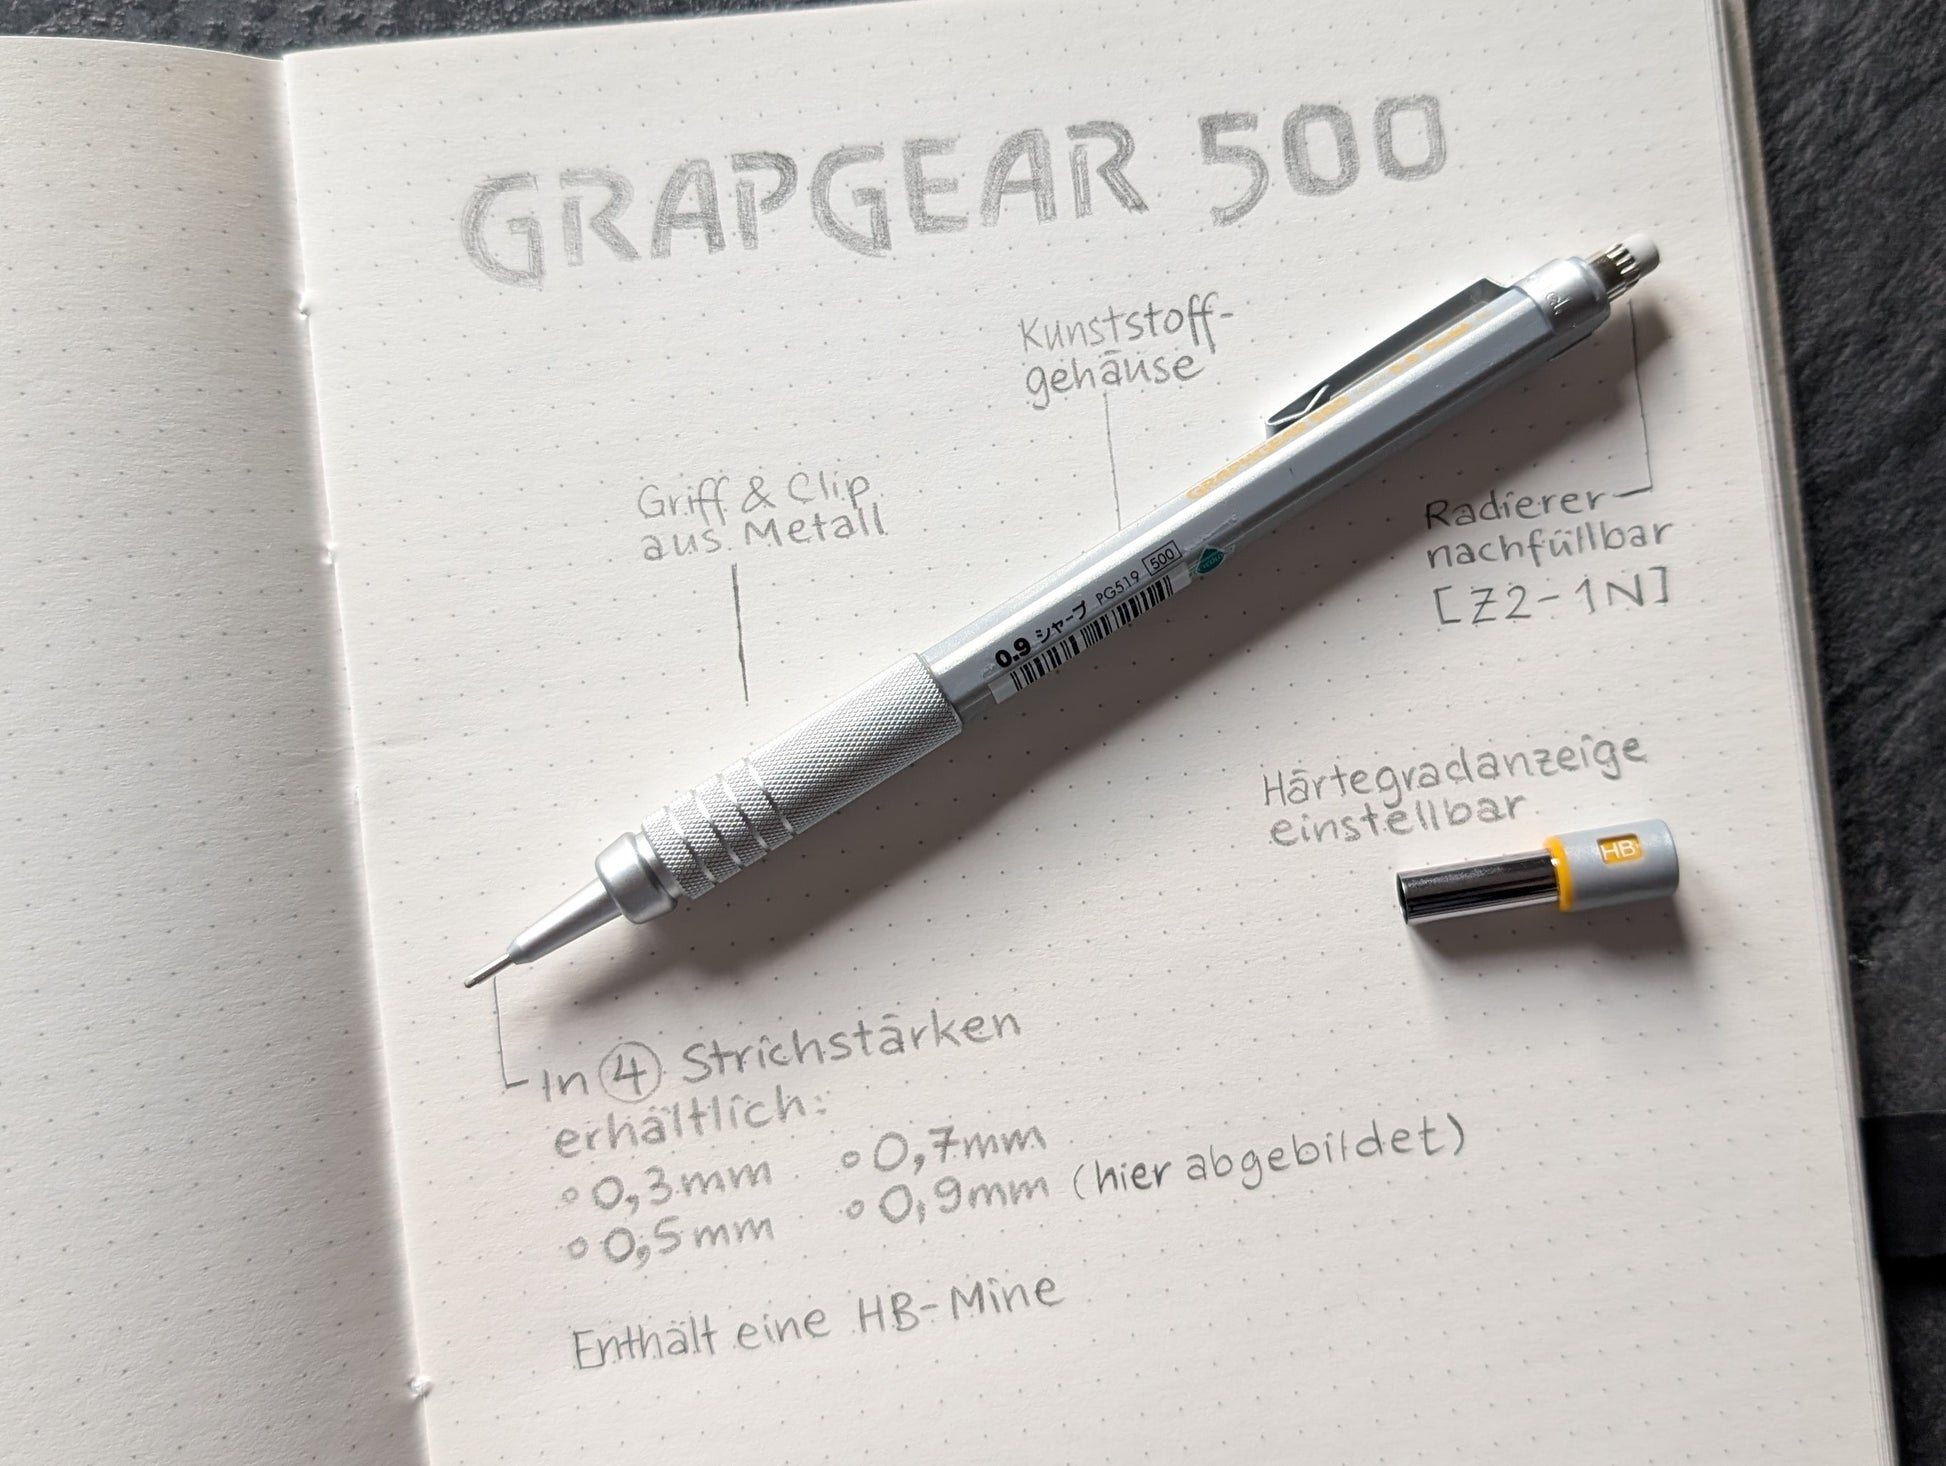 GRAPGEAR 500
Kunststoff-
gehäuse
Griff & Clip
aus Metall
Radierer
nachfüllbar
[Z2-1N]
GRAPHGEAR 500
0.9 Pentel
0.9 シャープ PG519 500
Härtegradanzeige
einstellbar
HB
In 4 Strichstärken
erhältlich:
0,3mm 0,7mm
0,5mm 0,9mm (hier abgebildet)
Enthält eine HB-Mine